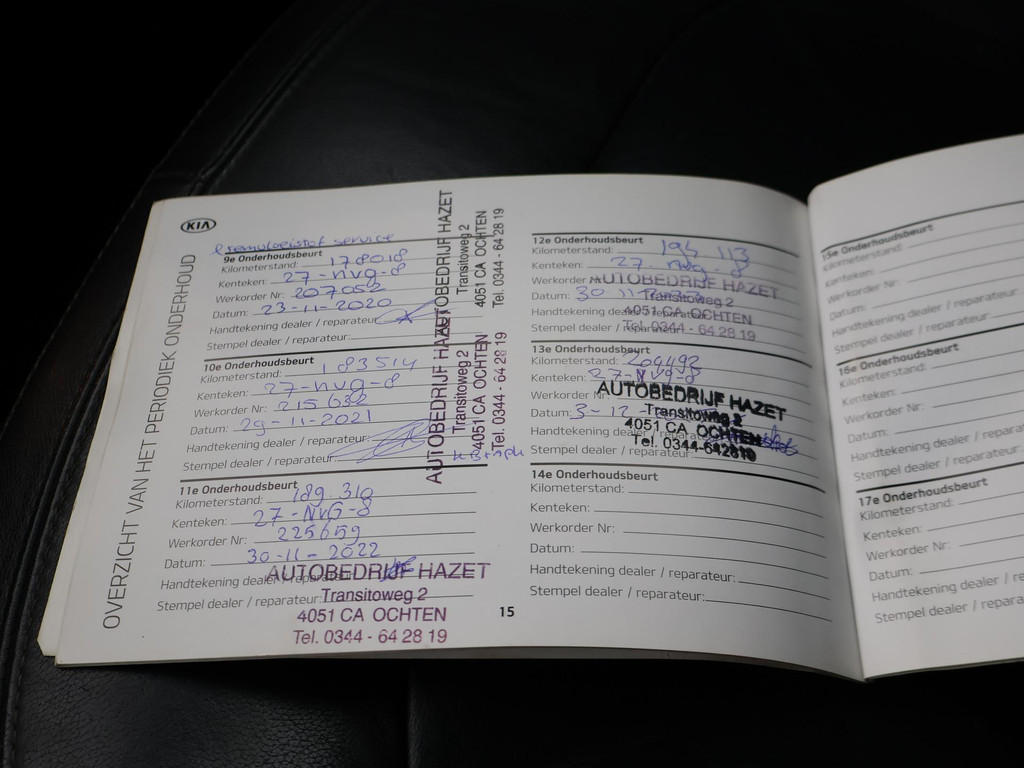 KIA
OVERZICHT VAN HET PERIODIEK ONDERHOUD
remvloeistof service
9e Onderhoudsbeurt
Kilometerstand: 178018
Kenteken: 27-nvg-8
Werkorder Nr: 207052
Datum: 23-11-2020
Handtekening dealer / reparateur:
Stempel dealer / reparateur:
AUTOBEDRIJF HAZET
Transitoweg 2
4051 CA OCHTEN
Tel. 0344 - 64 28 19
10e Onderhoudsbeurt
Kilometerstand: 183514
Kenteken: 27-nvg-8
Werkorder Nr: 215632
Datum: 29-11-2021
Handtekening dealer / reparateur:
Stempel dealer / reparateur:
AUTOBEDRIJF HAZET
Transitoweg 2
4051 CA OCHTEN
Tel. 0344 - 64 28 19
11e Onderhoudsbeurt
Kilometerstand: 189.310
Kenteken: 27-NVG-8
Werkorder Nr: 225659
Datum: 30-11-2022
Handtekening dealer / reparateur:
Stempel dealer / reparateur:
AUTOBEDRIJF HAZET
Transitoweg 2
4051 CA OCHTEN
Tel. 0344 - 64 28 19
15
12e Onderhoudsbeurt
Kilometerstand: 194 113
Kenteken: 27-nvg-8
Werkorder
Datum: 30 11
Handtekening dealer
Stempel dealer / reparateur:
AUTOBEDRIJF HAZET
Transitoweg 2
4051 CA OCHTEN
Tel. 0344 - 64 28 19
13e Onderhoudsbeurt
Kilometerstand: 200492
Kenteken: 27-NVG-8
Werkorder Nr:
Datum: 3-12
Handtekening dealer / reparateur:
Stempel dealer / reparateur:
AUTOBEDRIJF HAZET
Transitoweg 2
4051 CA OCHTEN
Tel. 0344-642819
14e Onderhoudsbeurt
Kilometerstand:
Kenteken:
Werkorder Nr:
Datum:
Handtekening dealer / reparateur:
Stempel dealer / reparateur:
15e Onderhoudsbeurt
Kilometerstand:
Kenteken:
Werkorder Nr:
Datum:
Handtekening dealer / reparateur:
Stempel dealer / reparateur:
16e Onderhoudsbeurt
Kilometerstand:
Kenteken:
Werkorder Nr:
Datum:
Handtekening dealer / reparateur
Stempel dealer / reparateur
17e Onderhoudsbeurt
Kilometerstand:
Kenteken:
Werkorder Nr:
Datum:
Handtekening dealer / re
Stempel dealer / repara